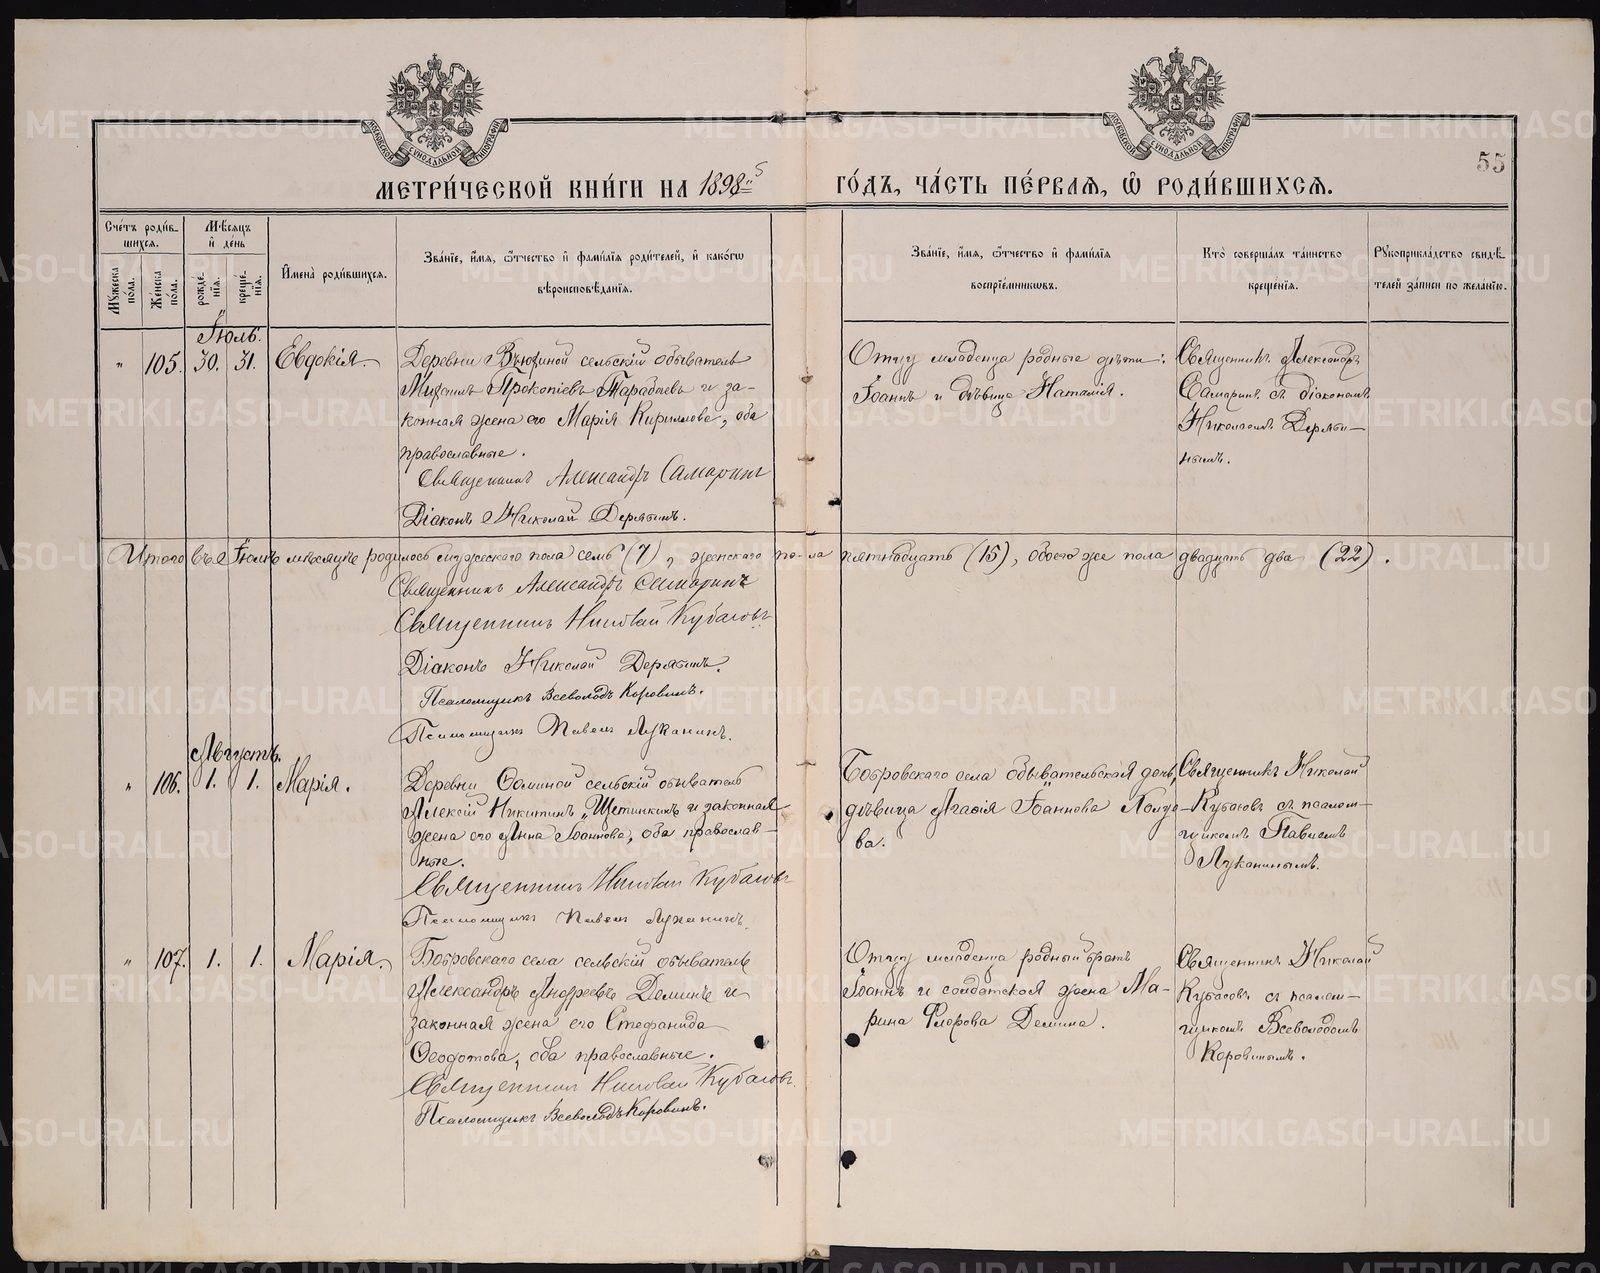 МОСКОВСКОЙ СѴНОДАЛЬНОЙ ТИПОГРАФІИ
МОСКОВСКОЙ СѴНОДАЛЬНОЙ ТИПОГРАФІИ
55
МЕТРИ́ЧЕСКОЙ КНИ́ГИ НА 1898
ГО́ДЪ, ЧА́СТЬ ПЕ́РВАѦ, Ѡ҆ РОДИ́ВШИХСѦ.
Сче́тъ роди́в-
шихсѧ.
Мѣ́сѧцъ
и҆ де́нь
Мꙋжеска по́ла.
Же́нска по́ла.
рожде́-нїѧ.
креще́-нїѧ.
И҆мена̀ роди́вшихсѧ.
Зва́нїе, и҆́мѧ, ѻ҆́тчество и҆ фамі́лїѧ роди́телей, и҆ како́гѡ
вѣроисповѣ́данїѧ.
Зва́нїе, и҆́мѧ, ѻ҆́тчество и҆ фамі́лїѧ
воспрїе́мникѡвъ.
Кто̀ соверша́лъ та́инство
креще́нїѧ.
Рꙋкоприкла́дство свидѣ́-
телей за́писи по жела́нїю.
Іюль.
" 105. 30. 31. Евдокія.
Деревни Вьюхиной сельскій обыватель
Михаилъ Прокопіевъ Тарабаевъ и за-
конная жена его Марія Кириллова, оба
православные.
Священникъ Александръ Самаринъ
Діаконъ Николай Дерябинъ.
Отцу младенца родные дѣти:
Іоаннъ и дѣвица Наталія.
Священникъ Александръ
Самаринъ съ діакономъ
Николаемъ Деряби-
нымъ.
Итого въ Іюлѣ мѣсяцѣ родилось мужескаго пола семь (7), женскаго по-ла пятнадцать (15), обоего же пола двадцать два (22).
Священникъ Александръ Самаринъ
Священникъ Николай Кубасовъ
Діаконъ Николай Дерябинъ.
Псаломщикъ Всеволодъ Коровинъ.
Псаломщикъ Павелъ Луканинъ.
Августъ.
" 106. 1. 1. Марія.
Деревни сельскій обыватель
Алексій Никитинъ Щетинкинъ и законная
жена его Анна Іоаннова, оба православ-
ные.
Священникъ Николай Кубасовъ
Псаломщикъ Павелъ Луканинъ.
Бобровскаго села обывательская дочь,
дѣвица Агаѳія Іоаннова
ва.
Священникъ Николай
Кубасовъ съ псалом-
щикомъ Павломъ
Луканинымъ.
" 107. 1. 1. Марія.
Бобровскаго села сельскій обыватель
Александръ Андреевъ Деминъ и
законная жена его Стефанида
Ѳеодотова, оба православные.
Священникъ Николай Кубасовъ
Псаломщикъ Всеволодъ Коровинъ.
Отцу младенца родный братъ
Іоаннъ и солдатская жена Ма-
рина Флорова Демина.
Священникъ Николай
Кубасовъ съ псалом-
щикомъ Всеволодомъ
Коровинымъ.
METRIKI.GASO-URAL.RU